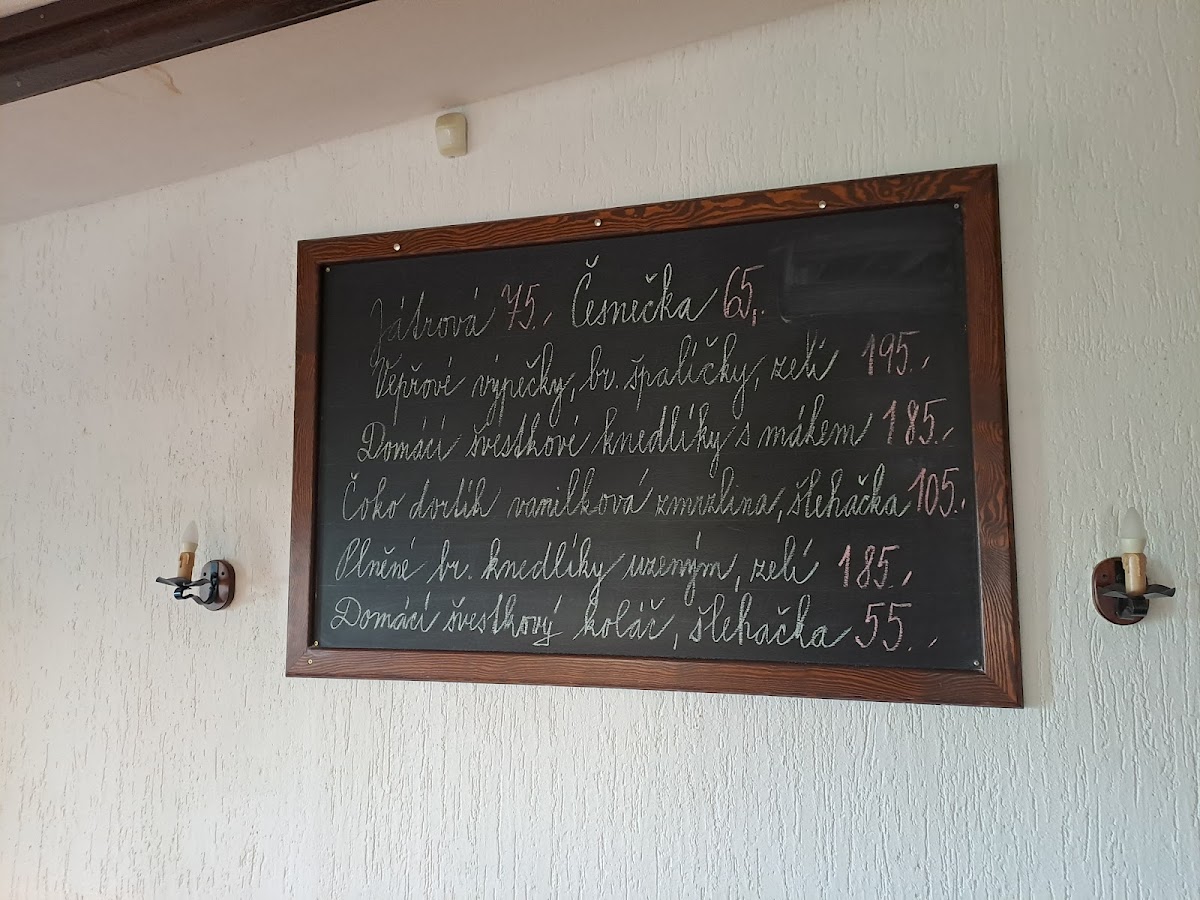 Játrová 75.- Česnečka 65,-
Vepřové výpečky, br. špalíčky, zelí 195.-
Domácí švestkové knedlíky s mákem 185.-
Čoko dortík vanilková zmrzlina, šlehačka 105.-
Plněné br. knedlíky uzeným, zelí 185.-
Domácí švestkový koláč, šlehačka 55.-